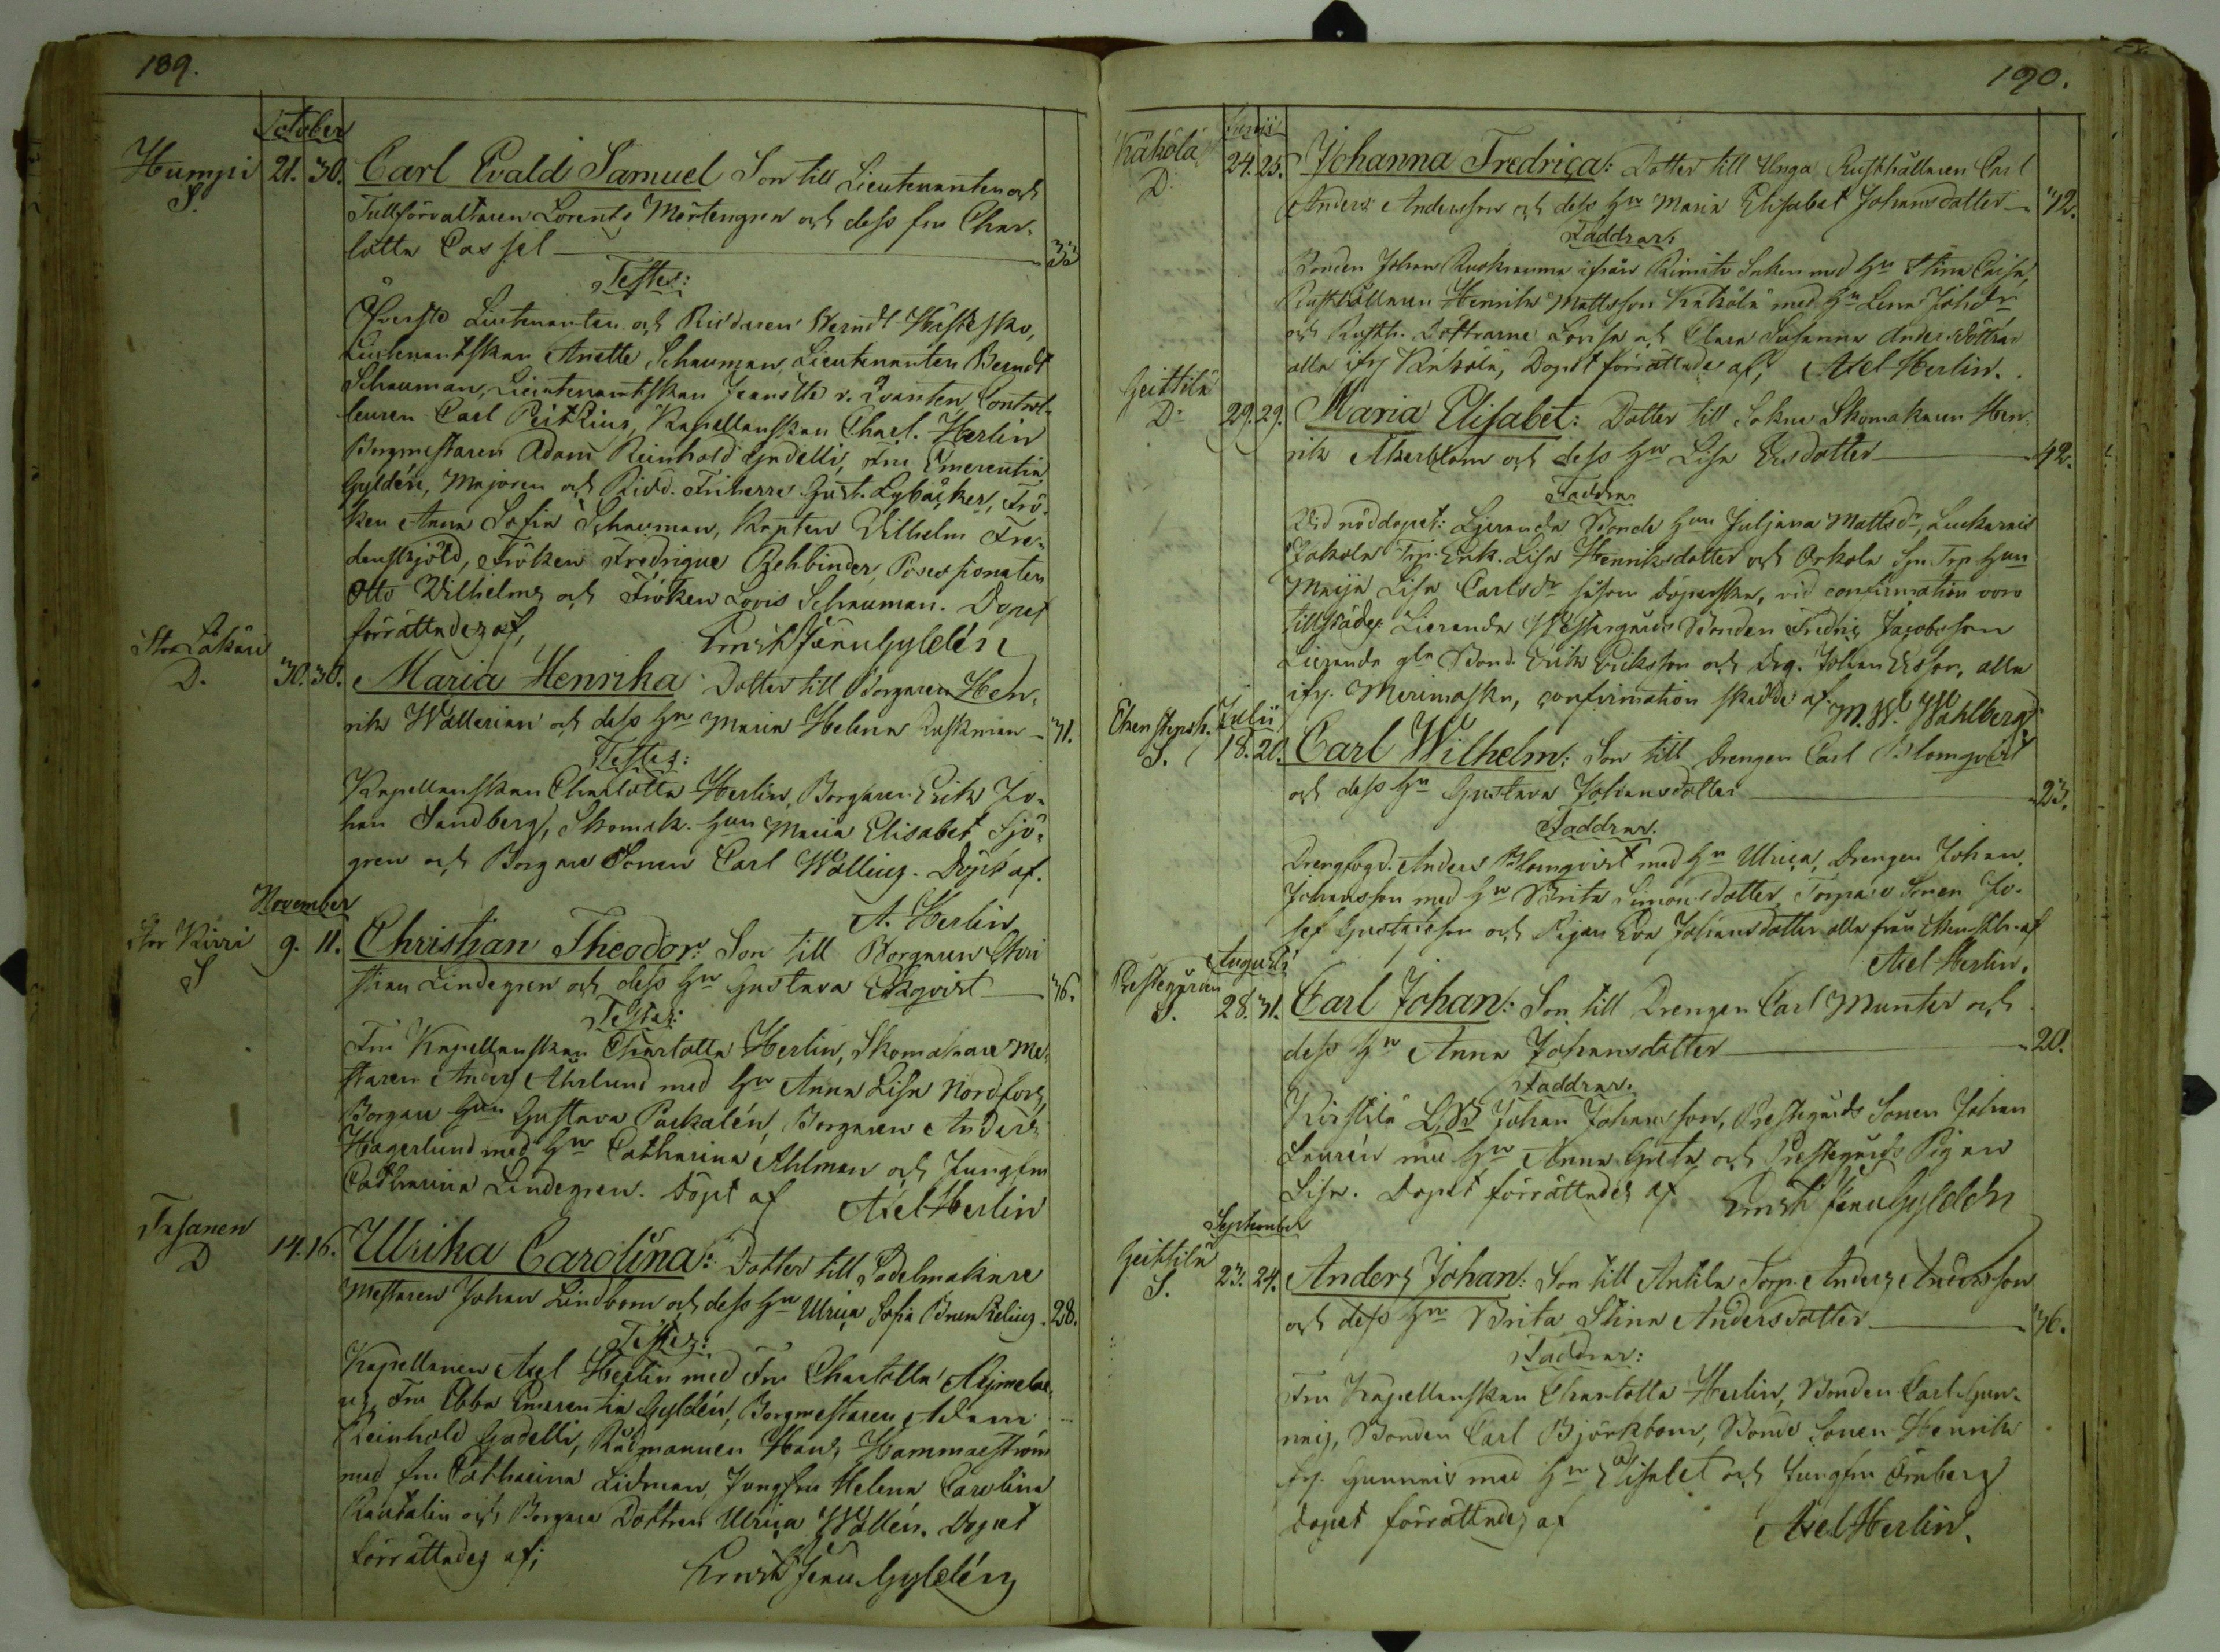 189.
October
Humpi 21. 30. Carl Evald Samuel Son till Lieutenanten och
S. Tullförvaltaren Lorents Mårtengren och dess fru Char-
lotta Cassel 33
Testes:
Öfverste Lieutenanten och Riddaren Berndt Hästesko,
Lieutenantskan Anette Schauman, Lieutenanten Berndt
Schauman, Lieutenantskan Jeanette v. Qvanten, Control-
leuren Carl Peitzius, Kapellanskan Charl. Herlin
Borgmestaren Adam Reinhold Gadelli, Fru Emerentia
Gyldén, Majoren och Ridd. Friherre Gust. Lybäcker, Frö-
ken Anna Sofia Schauman, Kapten Vilhelm Fre-
denskjöld, Fröken Fredrique Rehbinder, Possessionaten
Otto Vilhelms och Fröken Lovis Schauman. Dopet
förrättades af, Ernst Janu Gyldén
Stor Läkäri
D. 30. 30. Maria Henrika Dotter till Borgaren Hen-
rik Wallerian och dess Hu Maria Helena 31.
Testes:
Kapellanskan Charlotta Herlin, Borgaren Erik Jo-
han Sandberg, Skomak. Hun Maria Elisabet Sjö-
gren och Borgare Sonen Carl Walling. Döpt af.
A. Herlin
November
Stor Kirri 9. 11. Christian Theodor: Son till Borgaren Chri
S stian Lindegren och dess Hu Gustava Ekqvist 36.
Testes:
Fru Kapellanskan Charlotta Herlin, Skomakare Me-
staren Anders Ahrlund med Hu Anna Lisa Nordfors,
Borgare Hun Gustava Packalén, Borgaren Anders
Hagerlund med Hu Catharina Ahlman och Jungfru
Catharina Lindegren. Döpt af Axel Herlin
Fasanen
D 14. 16. Ulrika Carolina: Dotter till Sadelmakare
Mestaren Johan Lindbom och dess Hu Ulrica Sofia 28.
Testes:
Kapellanen Axel Herlin med Fru Charlotta
Fru Ebba Emerentia Gyldén, Borgmestaren Adam
Reinhold Gadelli, Rådmannen Hans Hammarström
med fru Catharina Lidman, Jungfru Helena Carolina
Rautalin och Borgare Dottren Ulrica Wallén. Dopet
förrättades af; Ernst Janu Gyldén
190.
Junii
Käkölä 24. 25. Johanna Fredrica: Dotter till Unga Rusthållaren Carl
D. Anders Andersson och dess Hu Maria Elisabet Johansdotter 42.
Faddrar:
Bonden Johan Ruokrauma ifrån Rimito Soken med Hu Stina Caisa,
Rusthållaren Henrik Mattsson Käkölä med Hu Lena Johdr
och Rusth. Döttrarne Lovisa och Clara Susanna Anders döttrar
alla ifr. Käkölä, Dopet förrättades af, Axel Herlin.
Geittilä
D. 29. 29. Maria Elisabet: Dotter till Sokne Skomakaren Hen-
rik Akerblom och dess Hu Lisa Ersdotter 42.
Faddrar
Vid nöddopet: Lieranda Bonde Hun Juljana Mattsdr,
Jakola Trp. Enk. Lisa Henriksdotter och Orkola Spn Trp. Hun
Maija Lisa Carlsdr såsom döperska, vid confirmation voro
tillstädes Lieranda Westergårds Bonden Fredric Jacobsson
Lieranda gla Bond. Erik Eriksson och Drg. Johan Ersson, alla
ifr. Merimasku, confirmation skedde af. M. W. Wahlberg
Ekenstensh. Julii
S. 18. 20. Carl Wilhelm: Son till Drengen Carl Blomqvist
och dess Hu Gustava Johansdotter 23.
Faddrar.
Drengfogd. Anders Blomqvist med Hu Ulrica, Drengen Johan
Johansson med Hu Brita Simonsdotter, Torpare Sonen Jo-
sef Gustafsson och Pigan Eva Johansdotter alla från af
Axel Herlin.
Augusti
Prestegården
S. 28. 31. Carl Johan: Son till Drengen Carl Munter och
dess Hu Anna Johansdotter 20.
Faddrar.
Kirstilä Johan Johansson, Prestegårds Sonen Johan
Laurén med Hu Anna Greta och Prestegårds Pigan
Lisa. Dopet förrättades af Ernst Janu Gyldén
September
Geittilä
S. 23. 24. Anders Johan: Son till Antila Torp. Anders Andersson
och dess Hu Brita Stina Andersdotter 36.
Faddrar:
Fru Kapellanskan Charlotta Herlin, Bonden Carl Gun-
nnis, Bonden Carl Björkbom, Bonde Sonen Henrik
frp. Gunnnis med Hu Elisabet och Jungfru Örnberg
dopet förrättades af Axel Herlin.